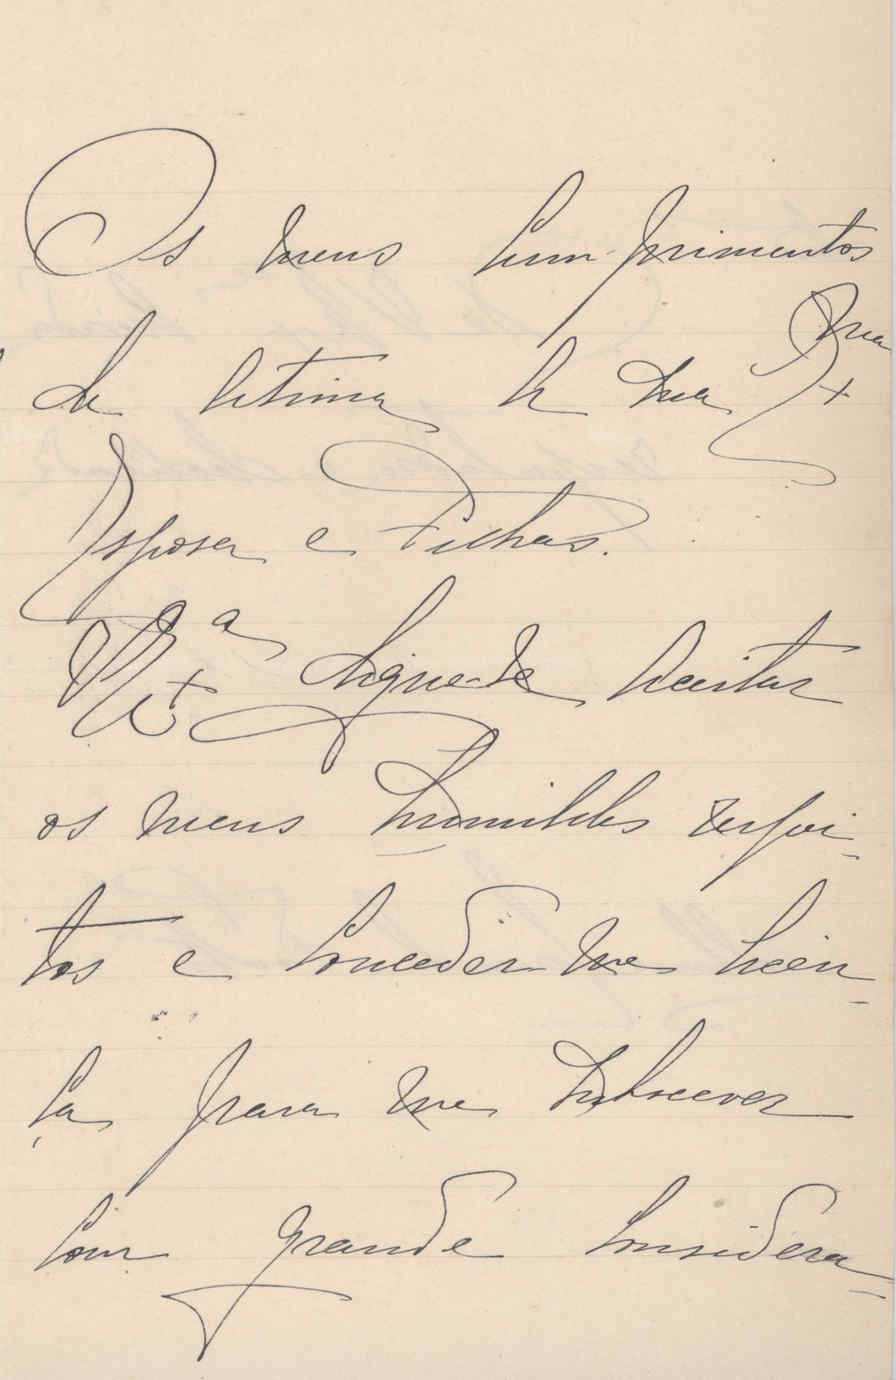 Os meus cumprimentos
de estima a sua Exma
Esposa e Filhas.
V. Exa digne-se aceitar
os meus humildes respei-
tos e conceder-me licen-
ça para me subscrever
com grande considera-